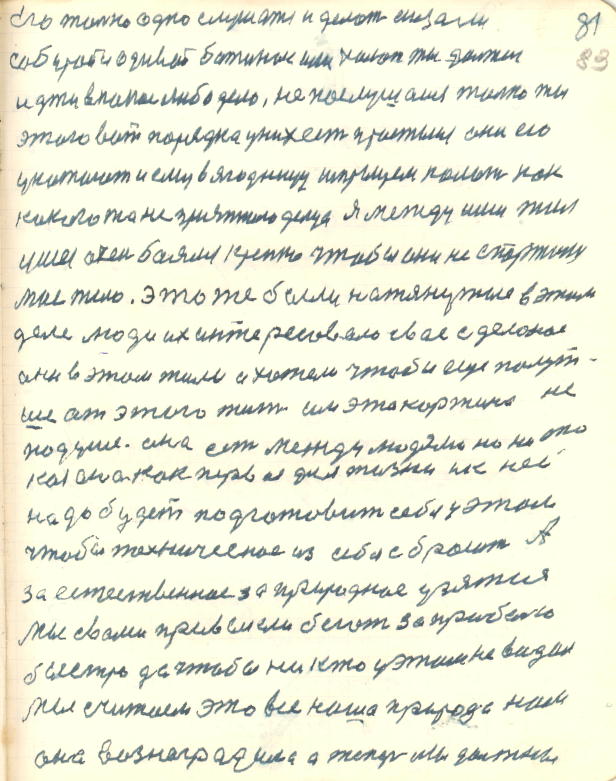 81
Его толко одно слушат и делат сказали
83
собират и одиват батинок или халат ты должен
идти в какое либо дело, не послушался толко ты
этого вот порядка у них ест простыя они его
укатают и ему в ягодницу шприцем колот как
какогото не приятного делца я между ими жил
и шел очен боялся крепко чтобы они не спортили
мое тело. Это же были натянутые в этом
деле люди их интересовало свае сделоное
они в этом жили и хотели чтобы еще получ-
ше от этого жит им эта картина не
подуше. она ест между людями но на это
она как первая для жизни и к ней
надо будет подготовит себя у этом
чтобы техническое из себя сбросит А
за естественное за природное узятися
мы с вами привыкли бегат за прибелю
быстро да чтобы никто у этом не видал
Мы считаем это все наша природа нам
она вознаградила а теперь мы должны